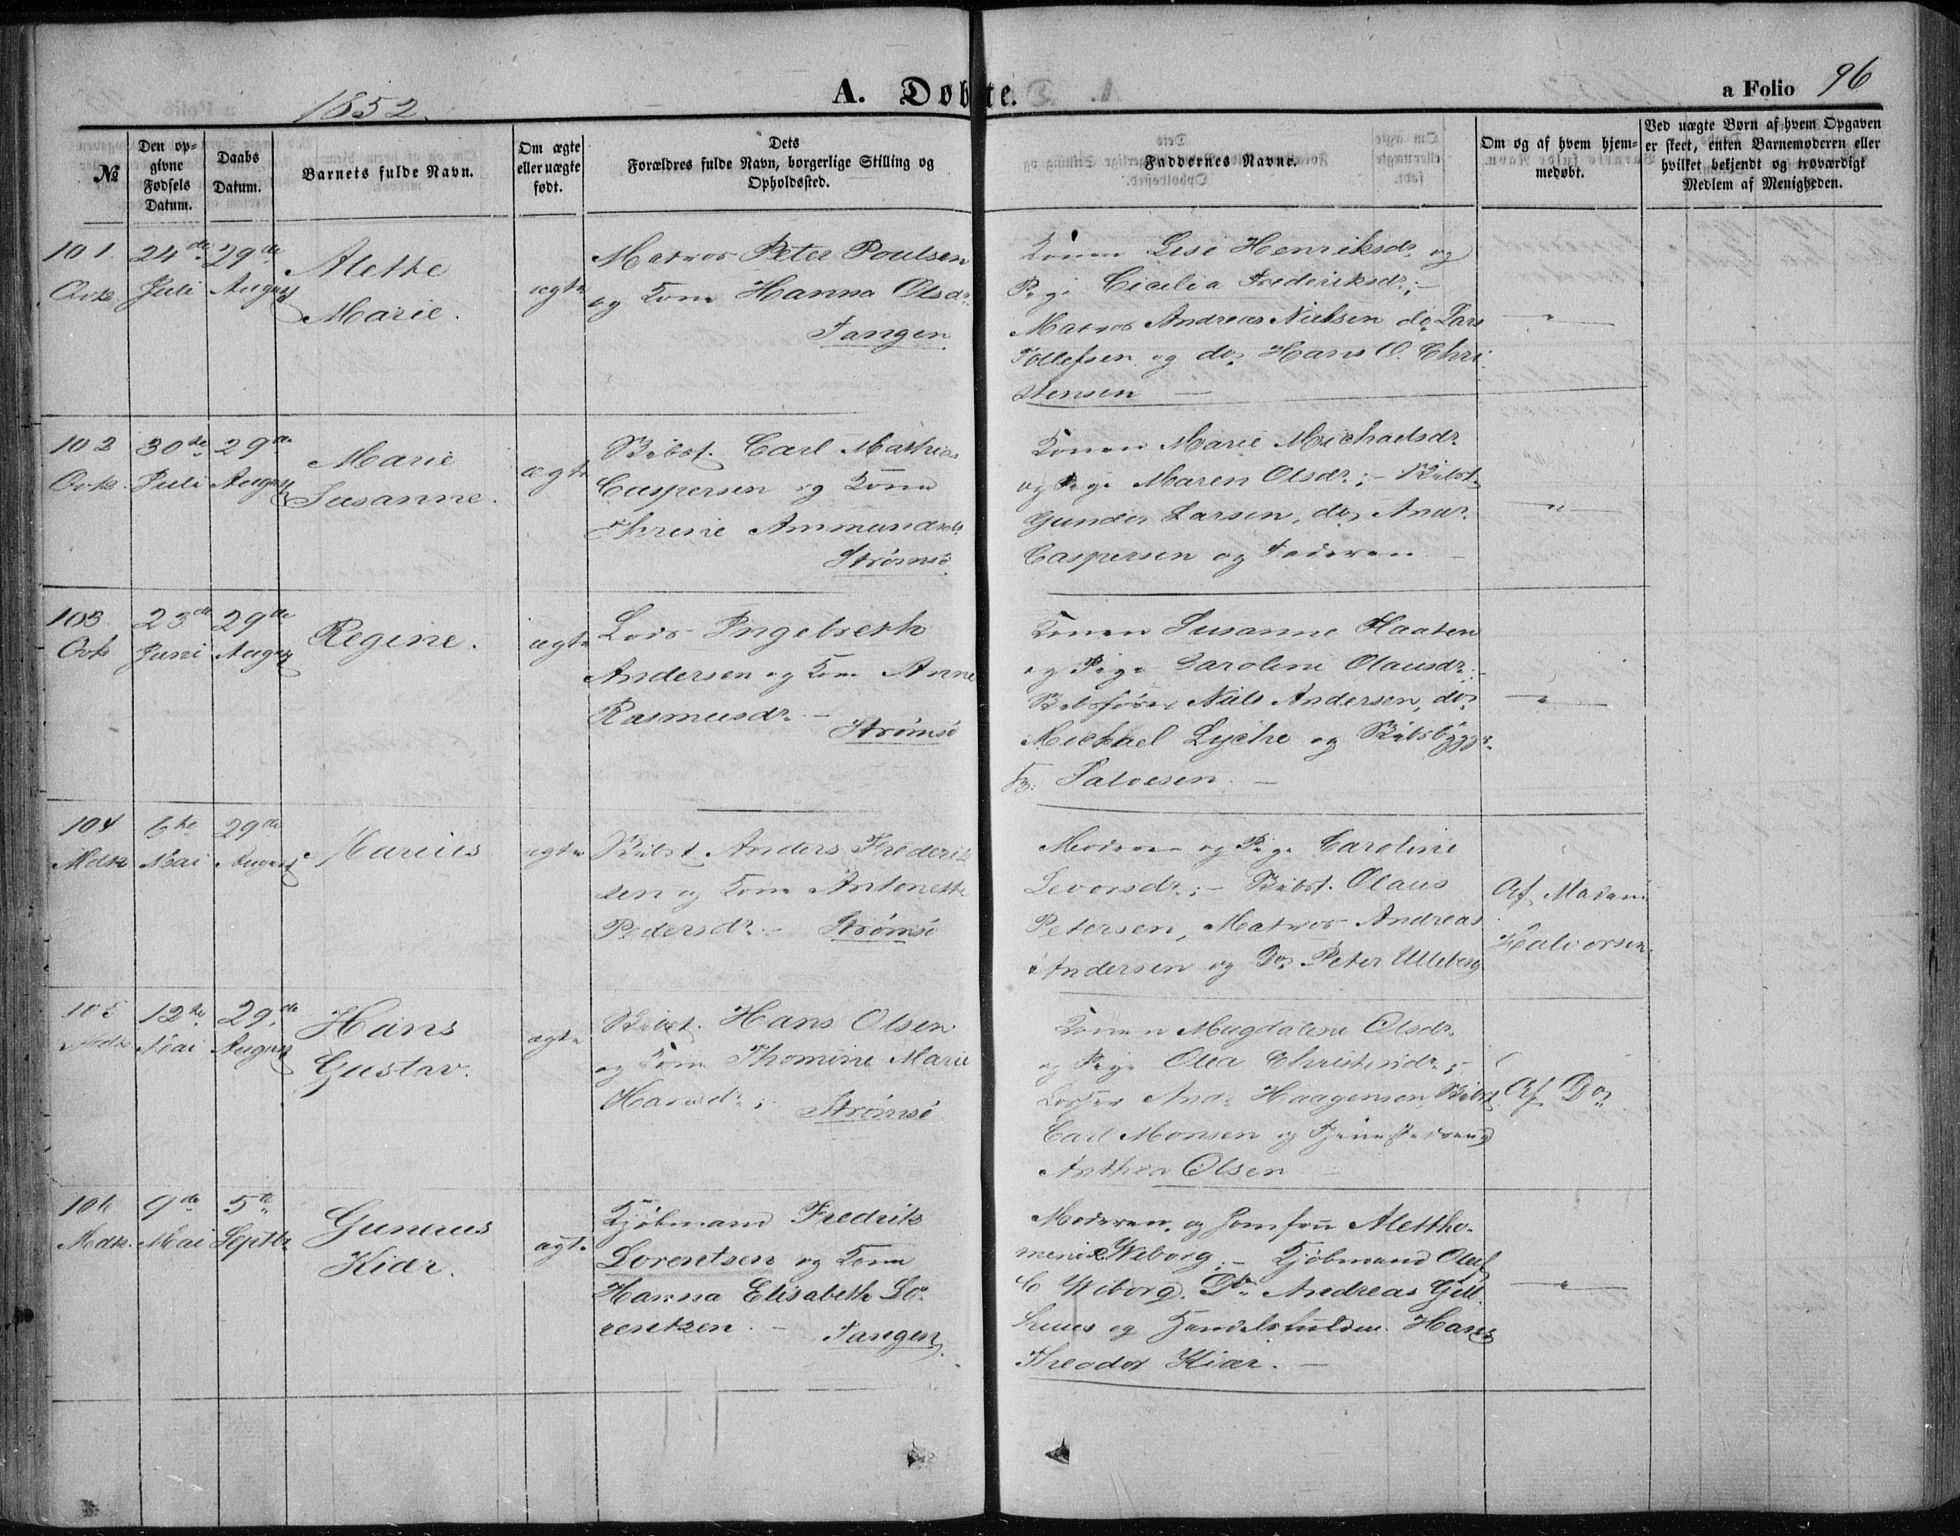 1852.
A. Døbte.
a Folio 96
№
Den op-
givne
Fødsels
Datum.
Daabs
Datum.
Barnets fulde Navn.
Om ægte
eller uægte
født.
Dets
Forældres fulde Navn, borgerlige Stilling og
Opholdssted.
Faddernes Navne.
Om og af hvem hjem-
medøbt.
Ved uægte Børn af hvem Opgaven
er skeet, enten Barnemoderen eller
hvilket bekjendt og troværdigt
Medlem af Menigheden.
101.
24de
Juli
29de
August
Alette
Marie.
ægte
Matros Peter Poulsen
og Kone Hanna Olsdr.
Tangen
Konen Lise Henriksdr. og
Pige Cicilia Frederiksdr.;
Matros Andreas Nielsen do Lars
Tollefsen og do Hans O. Chri
stensen
"
102
30te
Juli
29de
August
Marie
Susanne.
ægte
Bibst. Carl Mathias
Caspersen og Kone
Threne Ammundsdr.
Strømsø
Konen Marie Michaelsdr.
og Pige Maren Olsdr.; Bibst.
Gunder Larsen, do Andr.
Caspersen og Faderen
"
103.
23de
Juni
29de
August
Regine.
ægte
Lods Ingebreth
Andersen og Kone Anne
Rasmusdr.
Strømsø
Konen Susanne Haaten
og Pige Caroline Olausdr.
Niels Andersen, do
Michael Lyche og
Salvesen.
"
104
6te
Mai
29de
August
Marius
ægte
Bibst Anders Frederik
sen og Kone Antonette
Pedersdr.
Strømsø
Moderen og Pige Caroline
Levorsdr.; Bibst. Olaus
Petersen, Matros Andreas
Andersen og Do Peter Ulleberg
Af Madam
Halvorsen
105
12te
Mai
29de
August
Hans
Gustav.
ægte
Bibst. Hans Olsen
og Kone Thomine Marie
Hansdr.;
Strømsø
Konen Magdalene Olsdr.
og Pige Olea Christensdr.;
Andr. Haagensen, Bibst
Carl Monsen og
Anthon Olsen
Af Do
106
Mdk.
9de
Mai
5te
Septbr
Gunerius
Kiær.
ægte
Kjøbmand Fredrik
Lorentsen og Kone
Hanna Elisabeth Lo-
rentzen.
Tangen
Moderen og Jomfru Aletho-
menie Wiborg; Kjøbmand Oluf
C Wiborg. Do Andreas Gell
og Handelsfuldm. Hans
Theodor Kiær.
"